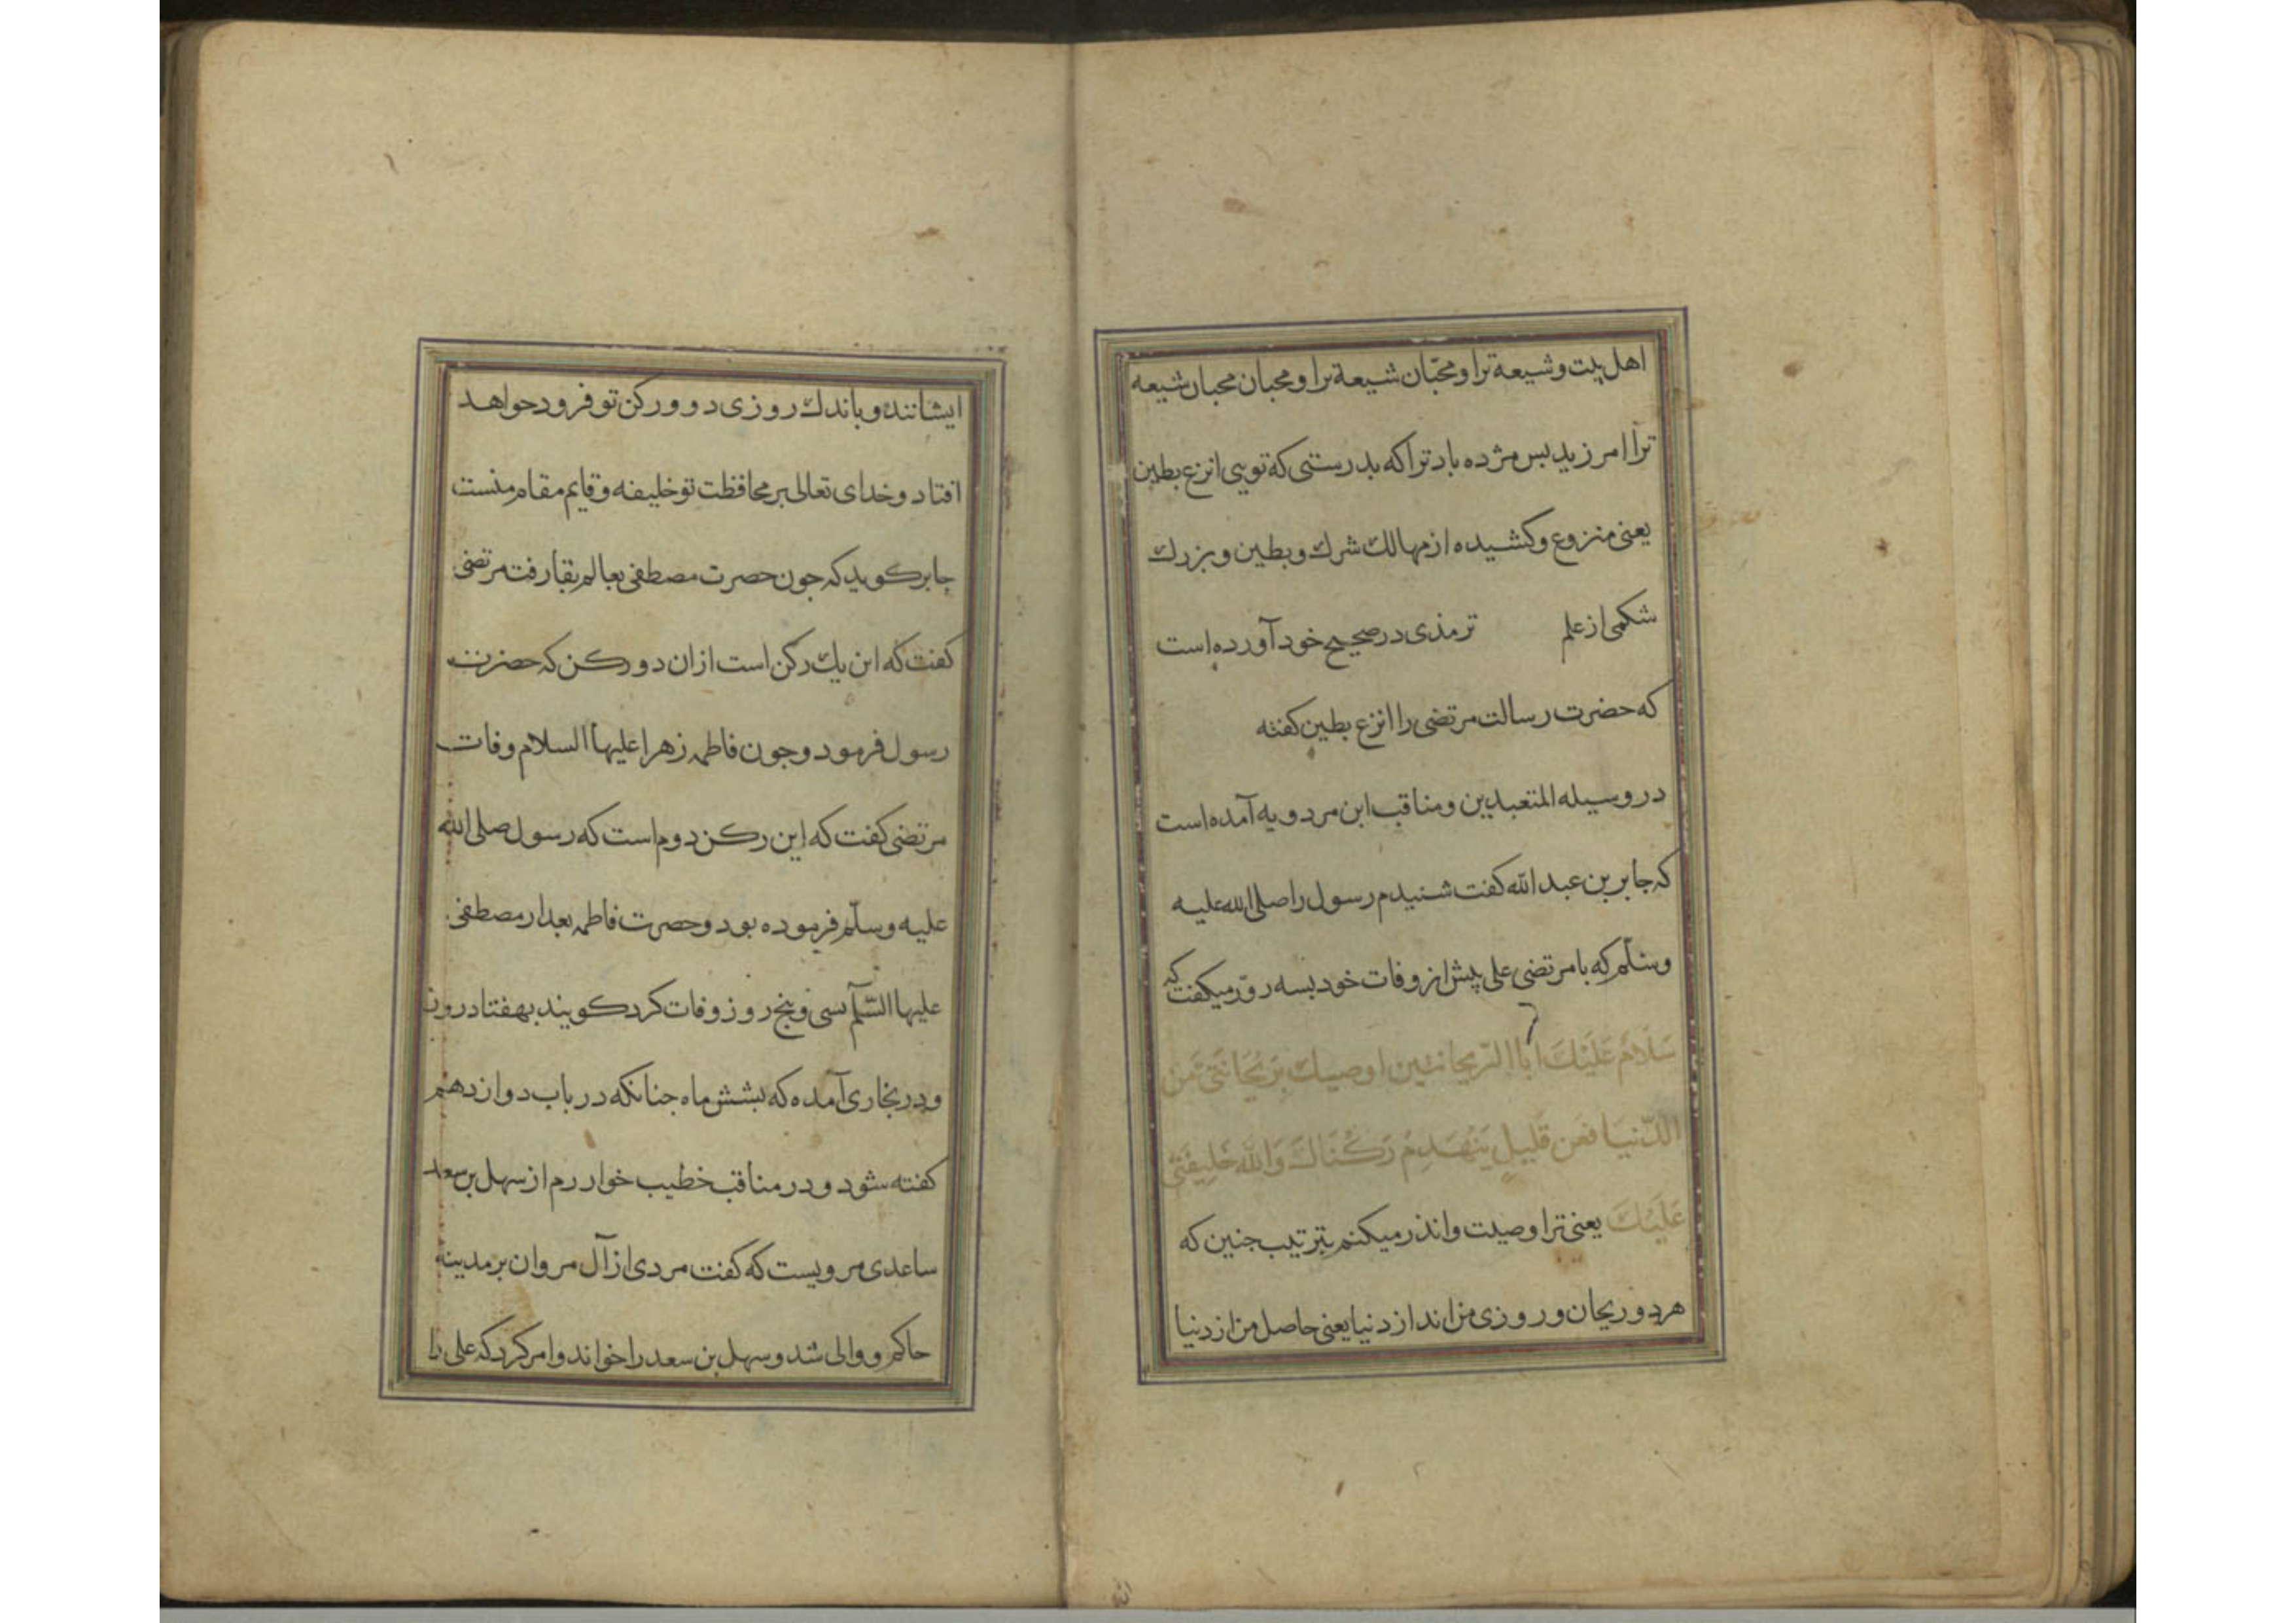 اهل بیت و شیعة ترا و محبّان شیعة ترا و محبان محبان شیعه
ترا امرزید بس مژده باد ترا که بدرستی که تویی انزع بطین
یعنی منزوع و کشیده از مهالك شرك و بطین و بزرك
شکمی از علم ترمذی در صحیح خود آورده است
که حضرت رسالت مرتضی را انزع بطین کفته
در وسیله المتعبدین و مناقب ابن مردویه آمده است
که جابر بن عبد الله کفت شنیدم رسول را صلی الله علیه
وسلّم که با مرتضی علی پیش از وفات خود بسه روز میکفت که
سَلَامٌ عَلَیْكَ اَبَا الرّیحانتین اوصیك بَرَیْحَانَتَیَّ مِنَ
الدّنیَا فعن قَلیلٍ یَنْهَدِمُ رَکْنَاكَ وَاللّه خَلِیفَتی
عَلَیْكَ یعنی ترا وصیت و انذر میکنم بترتیب جنین که
هر دو ریحان و روزی من اند از دنیا یعنی حاصل من از دنیا
ایشانند و باندك روزی دو ورکن تو فرود حواهد
افتاد و خدای تعالی بر محافظت تو خلیفه و قایم مقام منست
جابر کوید که جون حصرت مصطفی بعالم بقا رفت مرتضی
کفت که این یك رکن است ازان دو رکن که حضرت
رسول فرمود و جون فاطمه زهرا علیها السلام وفات
مرتضی کفت که این رکن دوم است که رسول صلی الله
علیه وسلّم فرموده بود و حصرت فاطمه بعد ار مصطفی
علیها السّلم سی و پنج روز وفات کرد کویند بهفتاد روز
و در بخاری آمده که بشش ماه جنانکه در باب دوازدهم
کفته شود و در مناقب خطیب خوارزم از سهل بن سعد
ساعدی مرویست که کفت مردی از آل مروان بر مدینه
حاکم و والی شد و سهل بن سعد را خواند و امر کرد که علی را